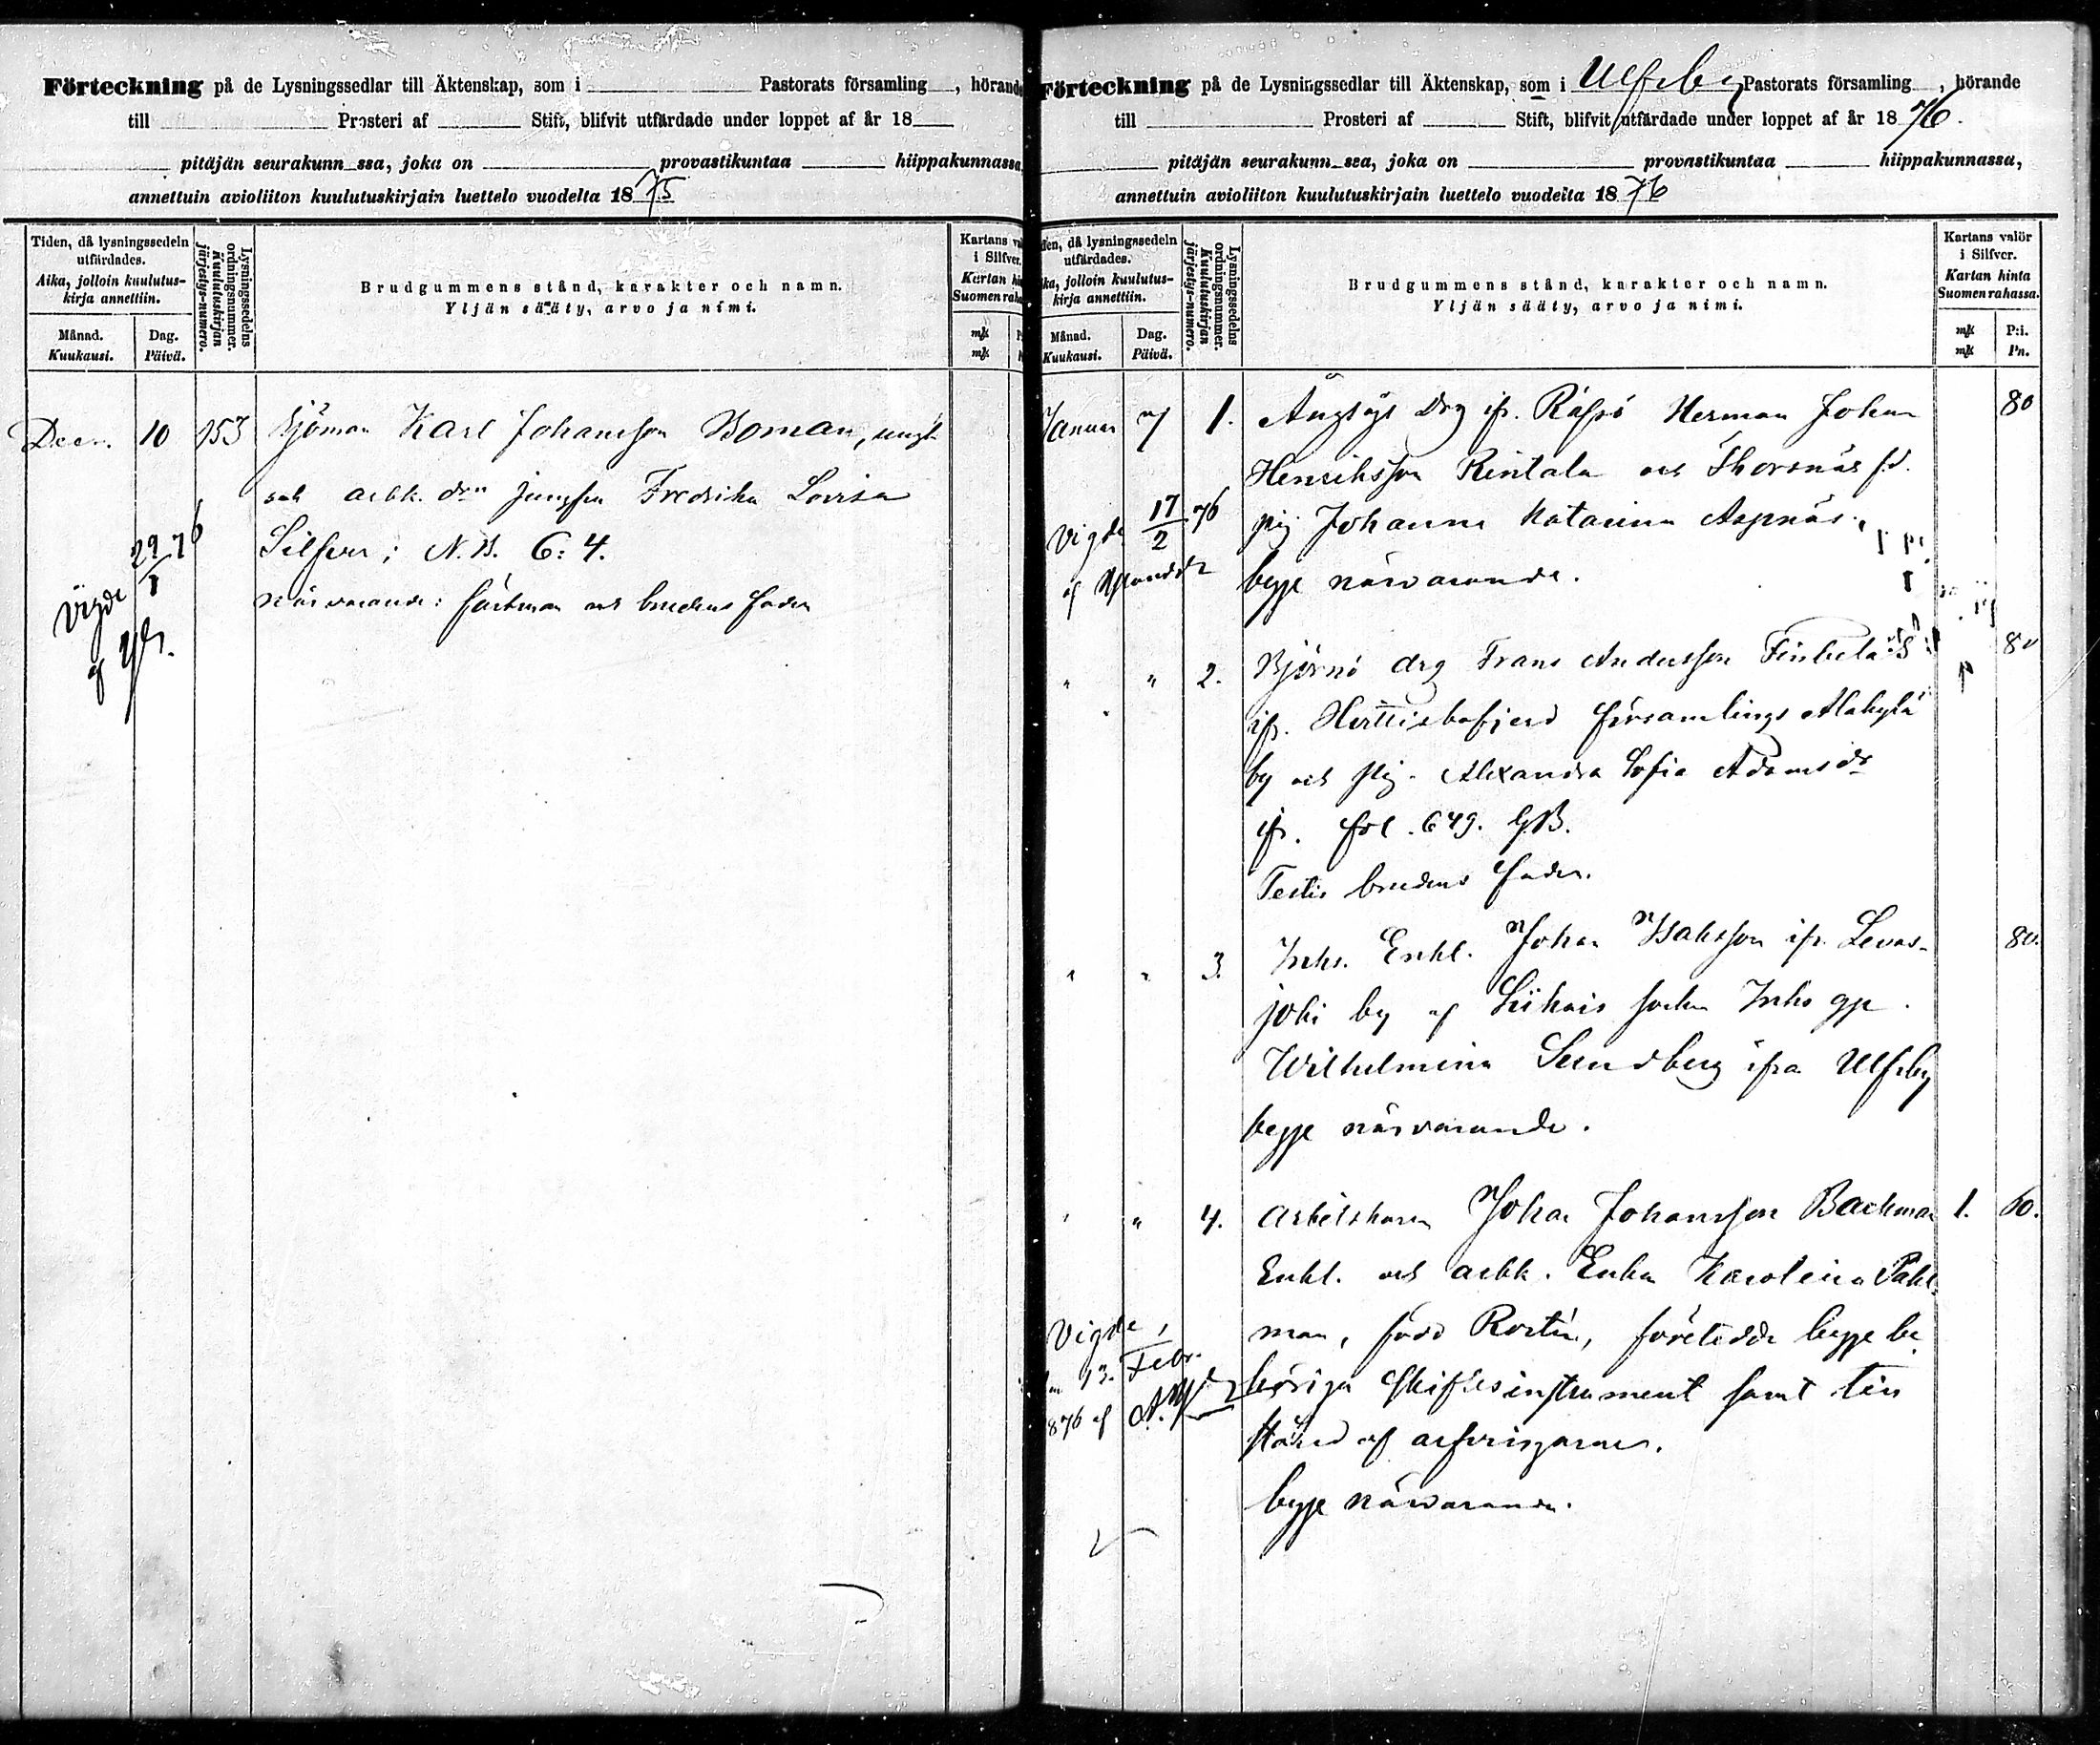 Förteckning på de Lysningssedlar till Äktenskap, som i Pastorats församling, hörande
till Prosteri af Stift, blifvit utfärdade under loppet af år 18
pitäjän seurakunn ssa, joka on provastikuntaa hiippakunnassa
annettuin avioliiton kuulutuskirjain luettelo vuodelta 1875
Tiden, då lysningssedeln utfärdades.
Aika, jolloin kuulutuskirja annettiin.
Månad. Kuukausi.
Dag. Päivä.
Lysningssedelns ordningsnummer.
Kuulutuskirjan järjestys-numero.
Brudgummens stånd, karakter och namn.
Yljän sääty, arvo ja nimi.
Kartans
i Silfver.
Kartan
Suomen
mk
mk
Decr. 10 153 Sjöman Karl Johansson Boman, ungk
och arbk. drn jungfru Fredrika Lovisa
Silfver; N.B. 6:4.
närvarande: fästman och brudens fader
Vigde 29/1 76
af
Förteckning på de Lysningssedlar till Äktenskap, som i Ulfsby Pastorats församling, hörande
till Prosteri af Stift, blifvit utfärdade under loppet af år 1876.
pitäjän seurakunn ssa, joka on provastikuntaa hiippakunnassa,
annettuin avioliiton kuulutuskirjain luettelo vuodelta 1876
den, då lysningssedeln utfärdades.
ka, jolloin kuulutuskirja annettiin.
Månad. Kuukausi.
Dag. Päivä.
Lysningssedelns ordningsnummer.
Kuulutuskirjan järjestys-numero.
Brudgummens stånd, karakter och namn.
Yljän sääty, arvo ja nimi.
Kartans valör
i Silfver.
Kartan hinta
Suomen rahassa.
mk P:i.
mk Pn.
Januar 7 1. Drg ifr. Räfsö Herman Johan 80
Henriksson Rintala och Thorsnäs
pig. Johanna Katarina Aspnäs.
begge närvarande.
Vigde 17/2 76
af
" " 2. Björnö drg Frans Andersson 80
ifr. församlings Alakylä
by och pig. Alexandra Sofia Adamsdr
ifr. fol. 649. G.B.
Testis brudens fader.
" " 3. Inhs. Enkl. Johan Isaksson ifr. Levas- 80.
joki by af Siikais socken Inhs gp.
Wilhelmina Sundberg ifra Ulfsby
begge närvarande.
" " 4. Arbetskarn Johan Johansson Backman 1. 60.
Enkl. och arbk. Enka Karolina Påhl-
man, född begge be
höriga skiftesinstrument samt
af arfvingarne.
begge närvarande.
Vigde,
13. Febr.
1876 af